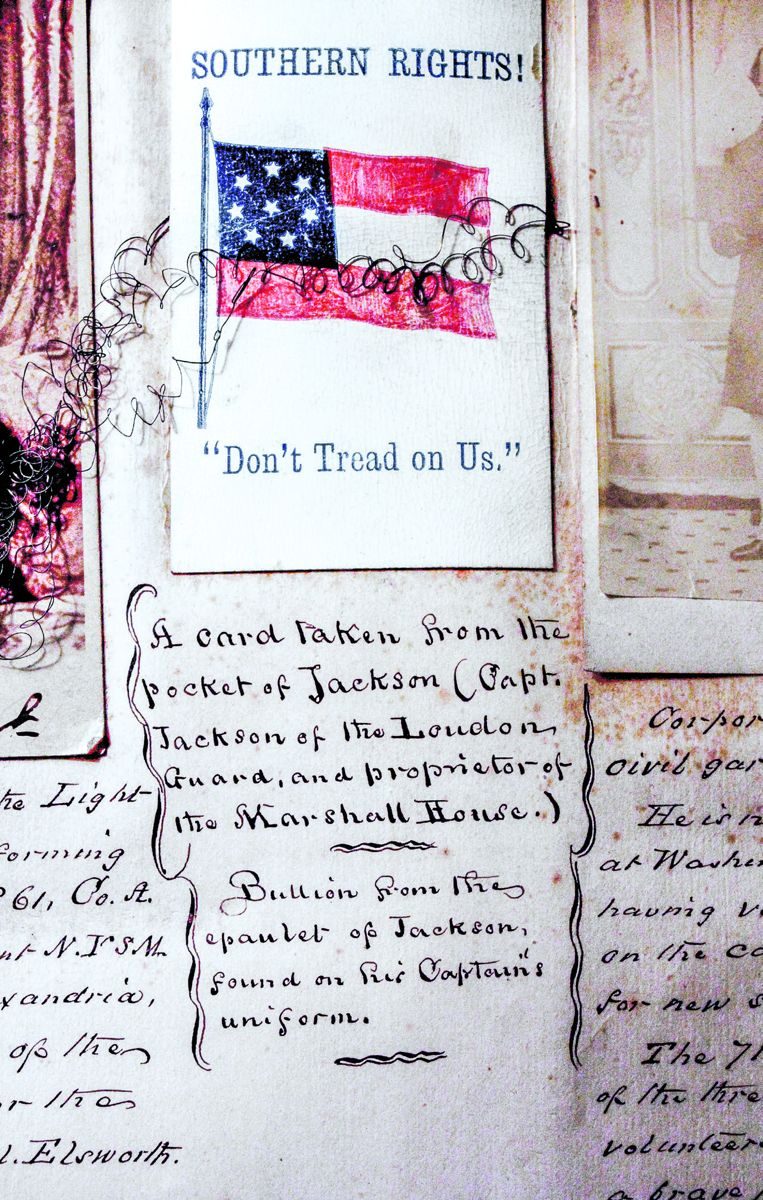 SOUTHERN RIGHTS!
"Don't Tread on Us."
A card taken from the
pocket of Jackson (Capt.
Jackson of the Loudon
Guard, and proprietor of
the Marshall House.)
Bullion from the
epaulet of Jackson,
found on his Captain's
uniform.
the Light
forming
61, Co. A.
N.Y.S.M.
xandria,
of the
r the
l. Elsworth.
Corpor
civil gar
He is n
at Washi
having v
on the ca
for new s
The 7t
of the thre
volunteer
a brave